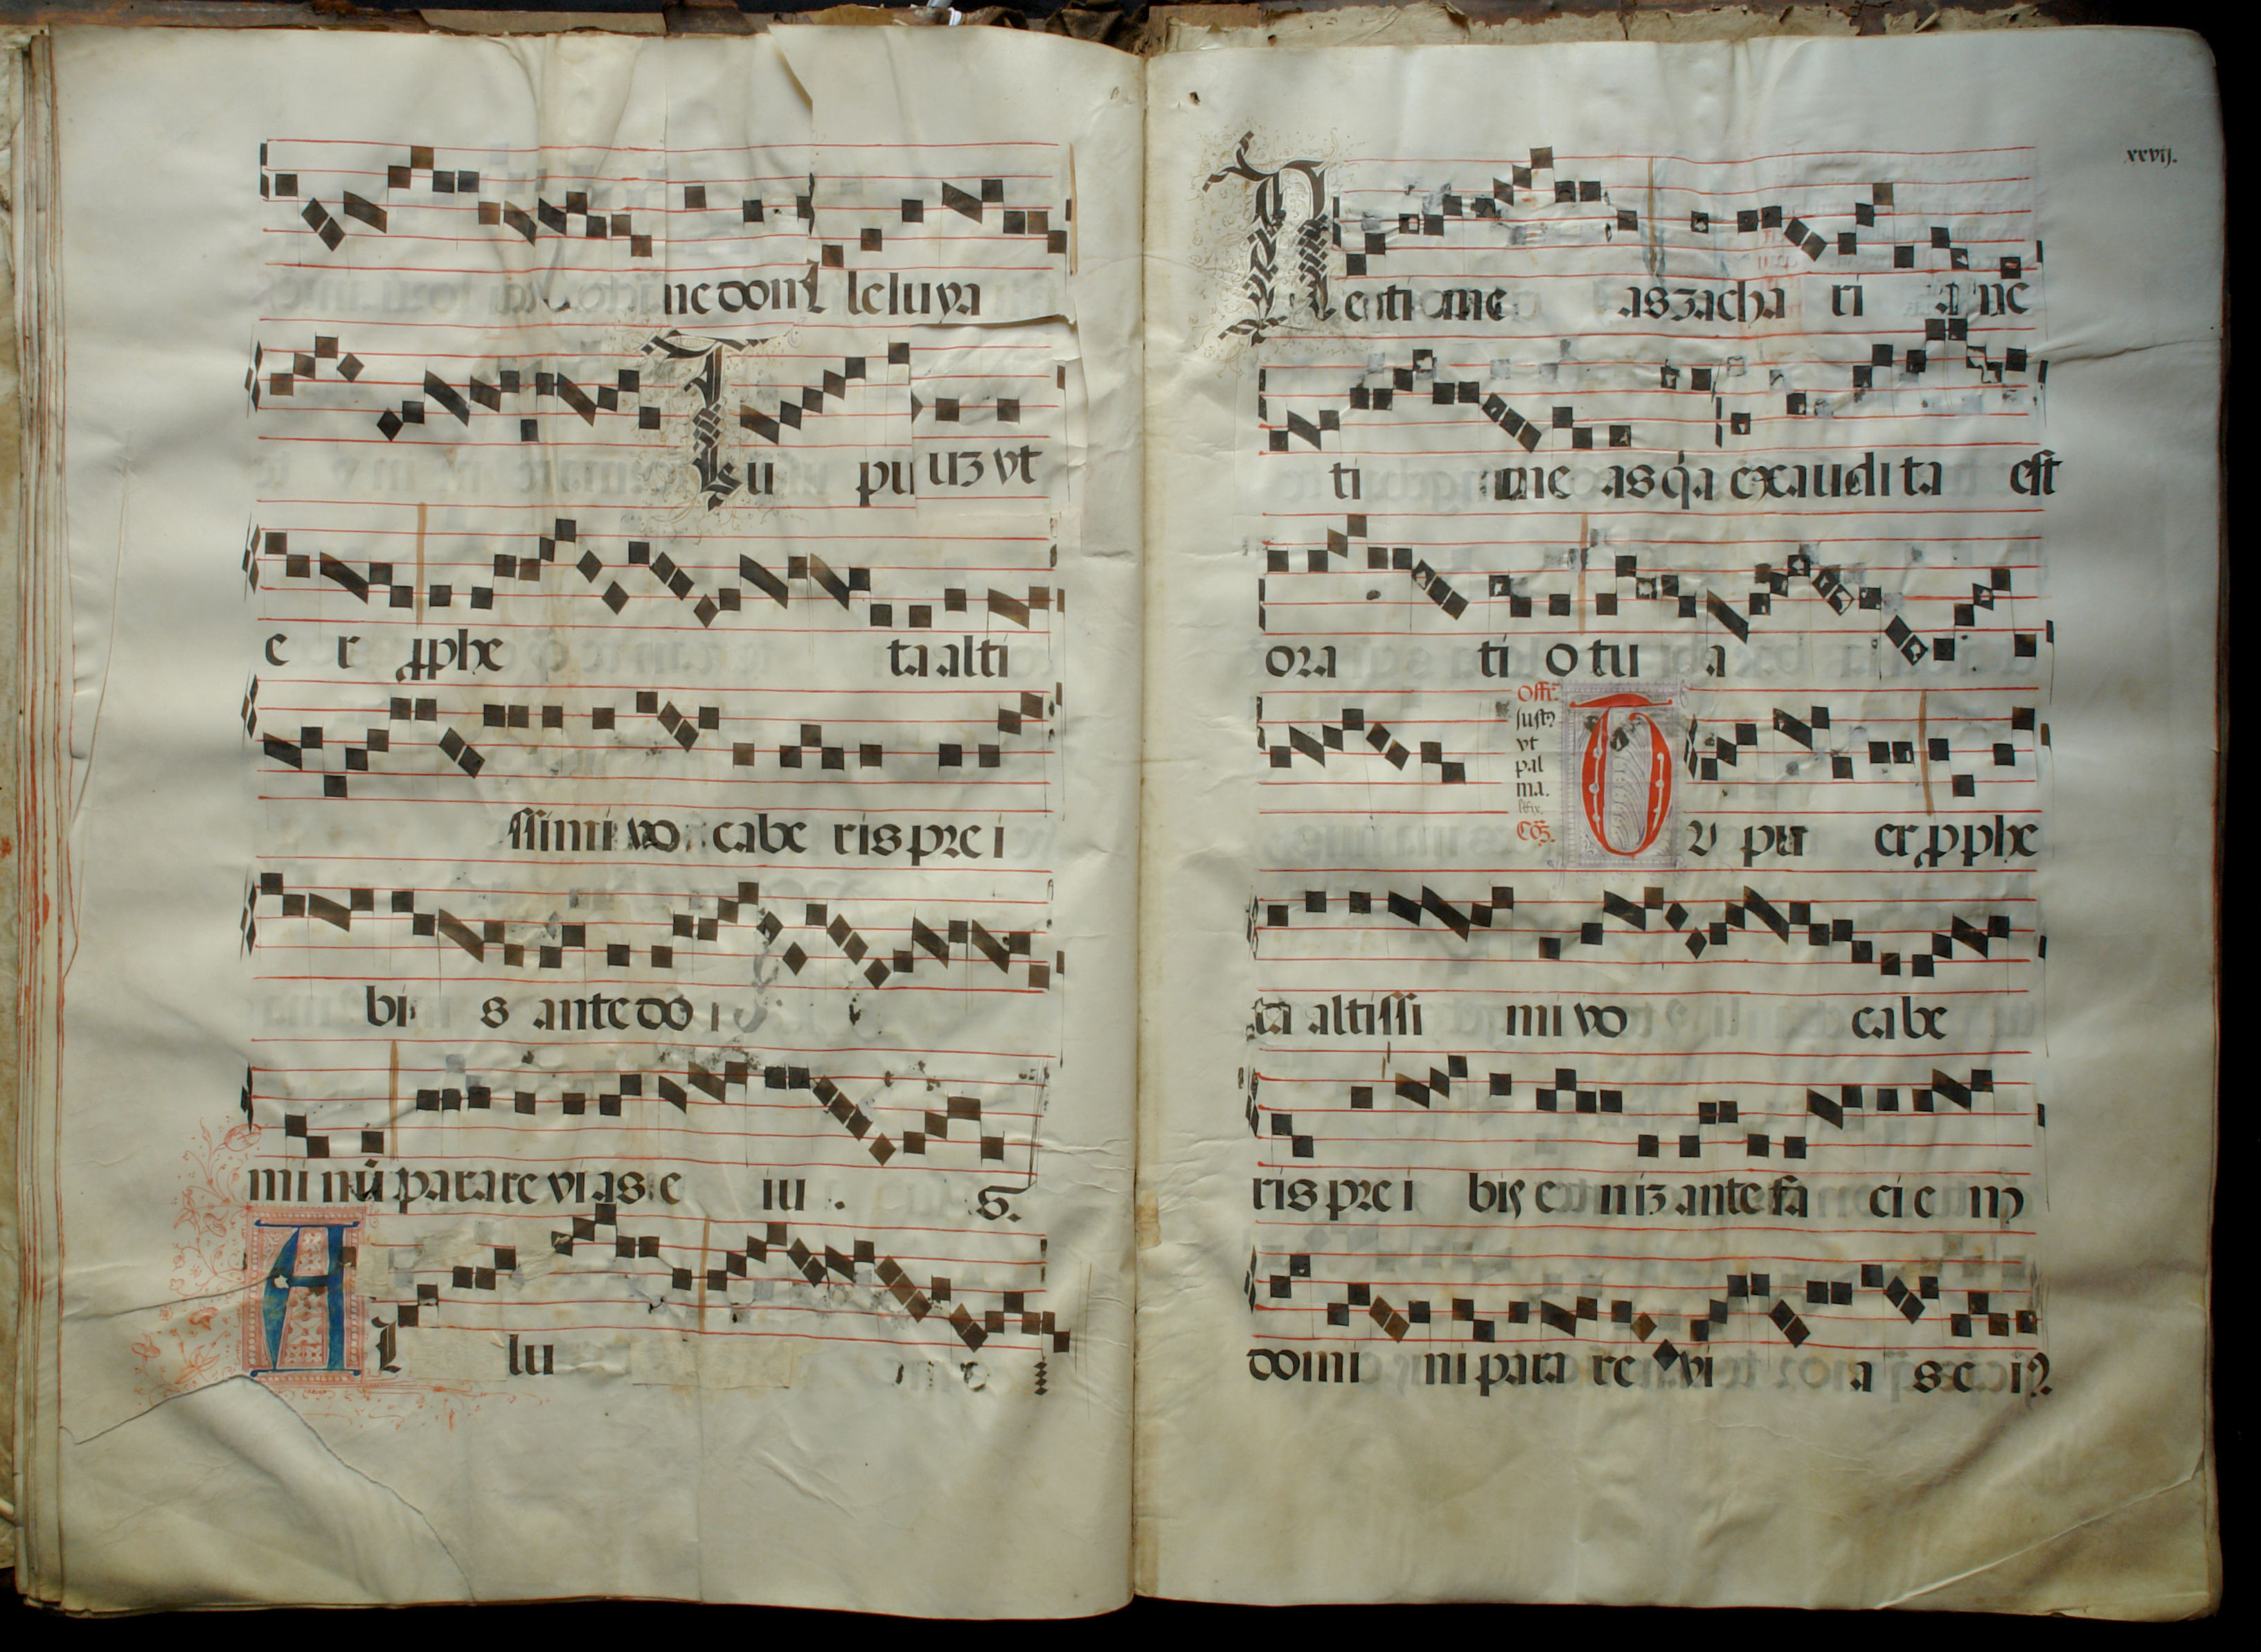 ne dom leluya
Tu pu uꝫ vt
e r ꝓphe ta alti
ssimi vo cabe ris pre i
bi s ante do
mi nū parare vias e iu s.
A l lu
xxvij.
Ne time as zacha ri a ne
ti me as q̄a exaudi ta est
ora ti o tu a
Offr̄.
iust9
vt
pal
ma.
Cōꝫ.
TV pu er ꝓphe
ta altissi mi vo cabe
ris pre i bis e niꝫ ante fa ci e m
domi ni para re vi a s e i9.